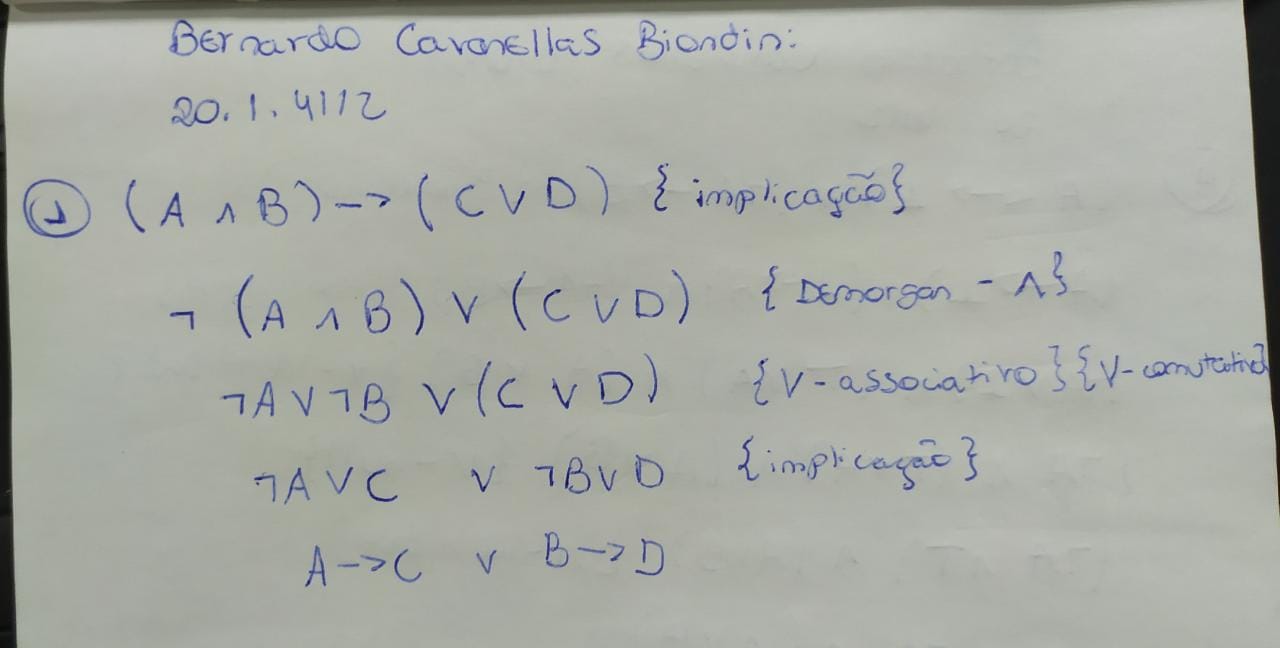 Bernardo Caronellas Biondini
20.1.4112
① (A ∧ B) -> (C ∨ D) { implicação}
¬ (A ∧ B) ∨ (C ∨ D) { Demorgan - ∧}
¬A ∨ ¬B ∨ (C ∨ D) {V-associativo}{V-comutativo}
¬A ∨ C ∨ ¬B ∨ D {implicação}
A -> C ∨ B -> D